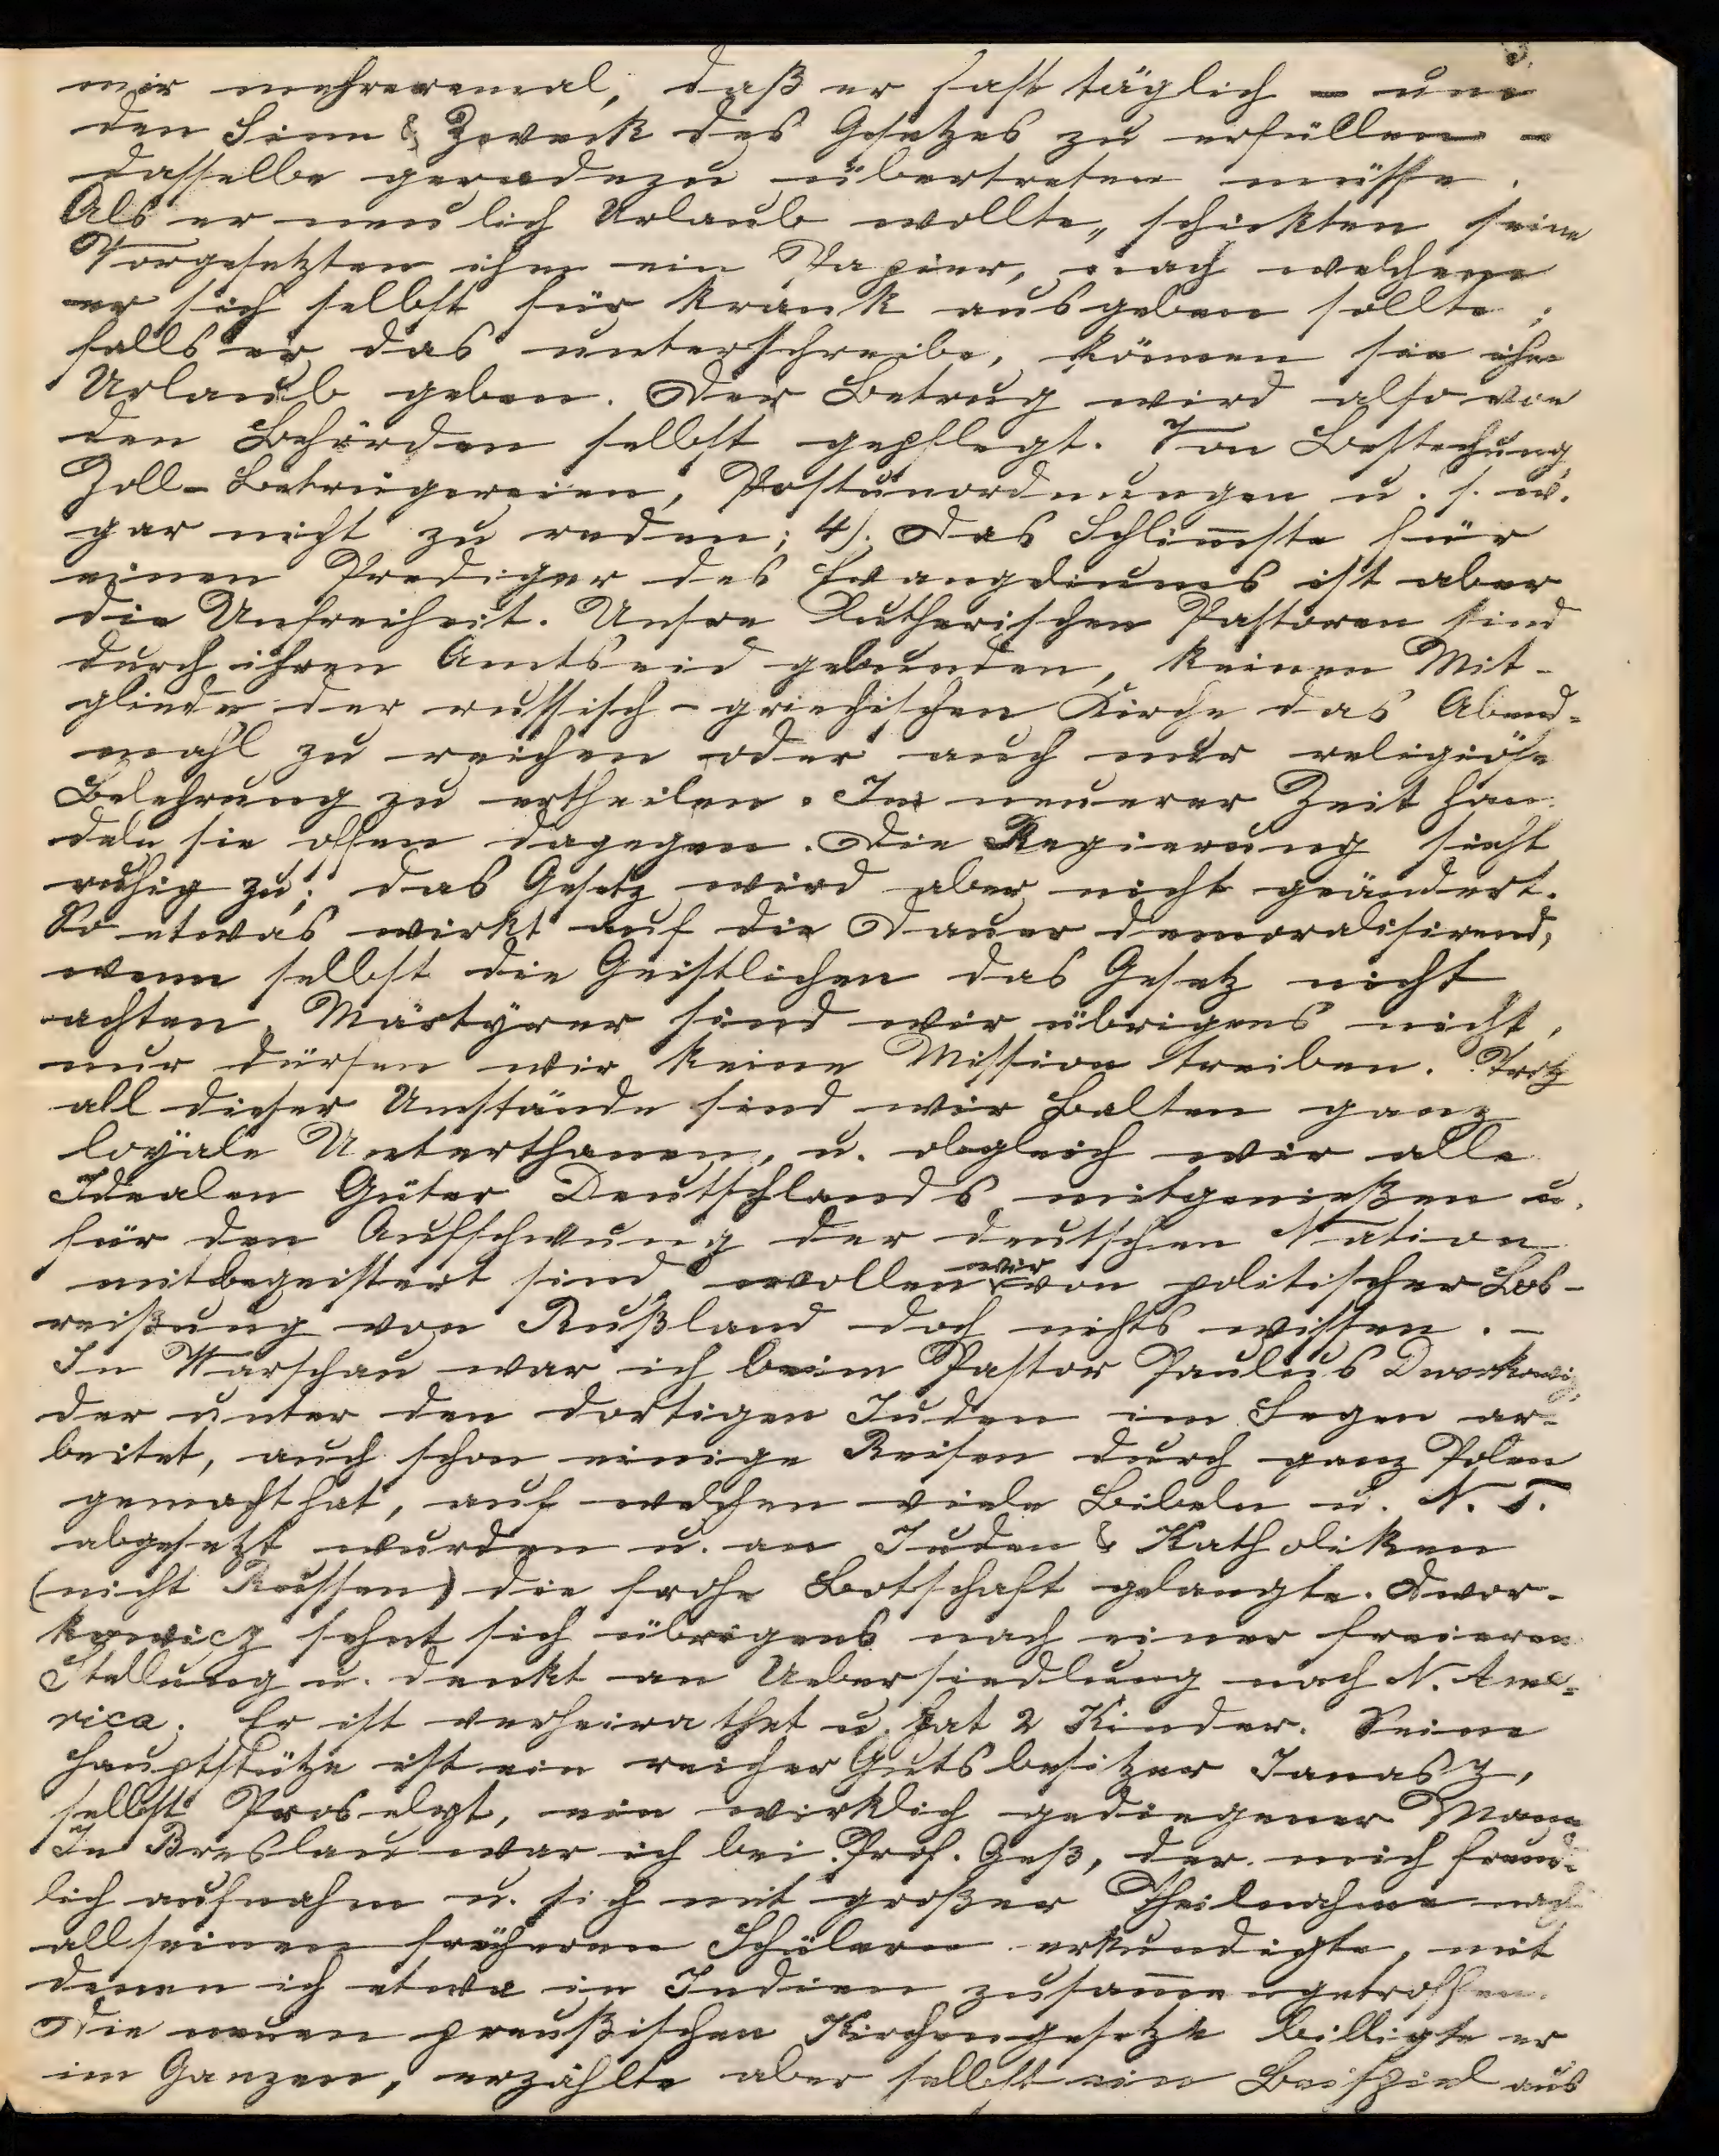 3.
mir mehreremal, daß er fast täglich – um
den Sinn & Zweck des Gesetzes zu erfüllen –
dasselbe geradezu übertreten müsse.
Als er neulich Urlaub wollte, schickten seine
Vorgesetzten ihm ein Papier, nach welchem
er sich selbst für krank ausgeben sollte;
falls er das unterschreibe, können sie ihm
Urlaub geben. Der Betrug wird also von
den Behörden selbst gepflegt. Von Bestechung,
Zoll-Betrügereien, Postunordnungen u. s. w.
gar nicht zu reden; 4). Das Schlim̅ste für
einen Prediger des Evangeliums ist aber
die Unfreiheit. Unsre Lutherischen Pastoren sind
durch ihren Amtseid gebunden, keinem Mit-
gliede der russisch-griechischen Kirche das Abend-
mahl zu reichen oder auch nur religiöse
Belehrung zu ertheilen. In neuerer Zeit han-
deln sie offen dagegen. Die Regierung sieht
ruhig zu; das Gesetz wird aber nicht geändert.
So etwas wirkt auf die Dauer demoralisirend,
wenn selbst die Geistlichen das Gesetz nicht
achten. Märtyrer sind wir übrigens nicht,
nur dürfen wir keine Mission treiben. Trotz
all dieser Umstände sind wir Balten ganz
loyale Unterthanen, u. obgleich wir alle
Idealen Güter Deutschlands mitgenießen u.
für den Aufschwung der deutschen Nation
mitbegeistert sind, wollen wir von politischer Los-
reißung von Rußland doch nichts wissen. –
In Warschau war ich beim Pastor Paulus Dworkowicz,
der unter den dortigen Juden im Segen ar-
beitet, auch schon einige Reisen durch ganz Polen
gemacht hat, auf welchen viele Bibeln u. N. T.
abgesetzt wurden u. an Juden & Katholiken
(nicht Russen) die frohe Botschaft gelangte. Dwor-
kowicz sehnt sich übrigens nach einer freieren
Stellung u. denkt an Uebersiedlung nach N. Ame-
rica. Er ist verheirathet u. hat 2 Kinder. Seine
Hauptstütze ist ein reicher Gutsbesitzer Janasz,
selbst Proselyt, ein wirklich gediegener Mann.
In Breslau war ich bei Prof. Geß, der mich freund-
lich aufnahm u. sich mit großer Theilnahme nach
all seinen früheren Schülern erkundigte, mit
denen ich etwa in Indien zusam̅engetroffen.
Die neuen preußischen Kirchengesetze billigte er
im Ganzen, erzählte aber selbst ein Beispiel aus